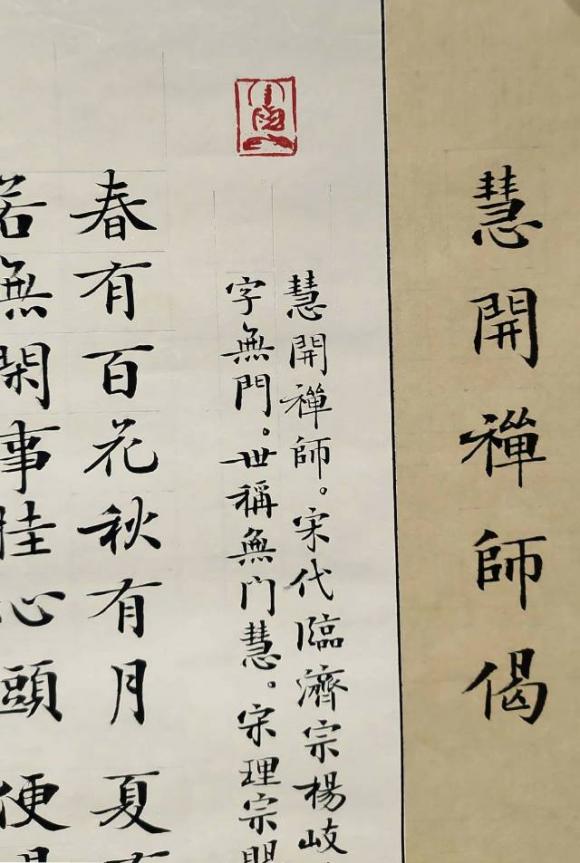 慧開禪師偈
慧開禪師。宋代臨濟宗楊岐
字無門。世稱無门慧。宋理宗開
春有百花秋有月 夏有
若無閑事挂心頭 便是